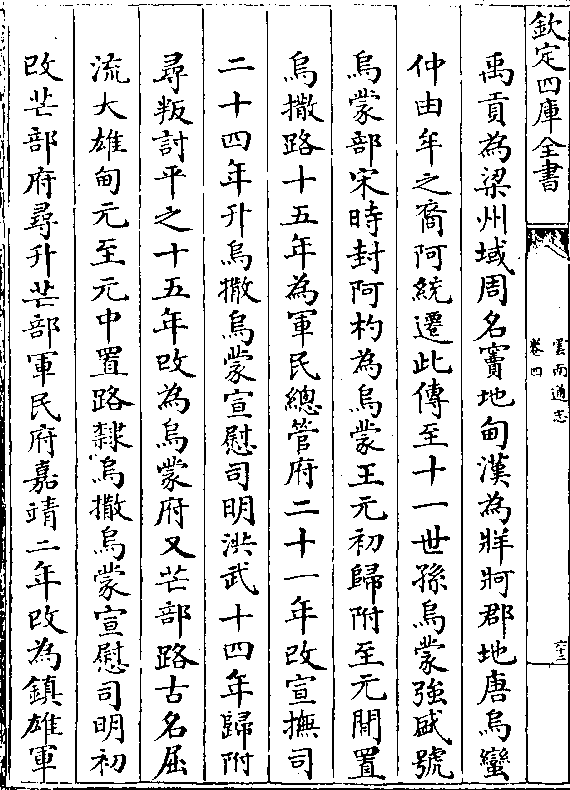 欽定四庫全書
雲南通志
卷四
六十二
禹貢為梁州域周名竇地甸漢為牂牁郡地唐烏蠻
仲由牟之裔阿統遷此傳至十一世孫烏蒙強盛號
烏蒙部宋時封阿杓為烏蒙王元初歸附至元間置
烏撒路十五年為軍民總管府二十一年改宣撫司
二十四年升烏撒烏蒙宣慰司明洪武十四年歸附
尋叛討平之十五年改為烏蒙府又芒部路古名屈
流大雄甸元至元中置路隸烏撒烏蒙宣慰司明初
改芒部府尋升芒部軍民府嘉靖二年改為鎮雄軍